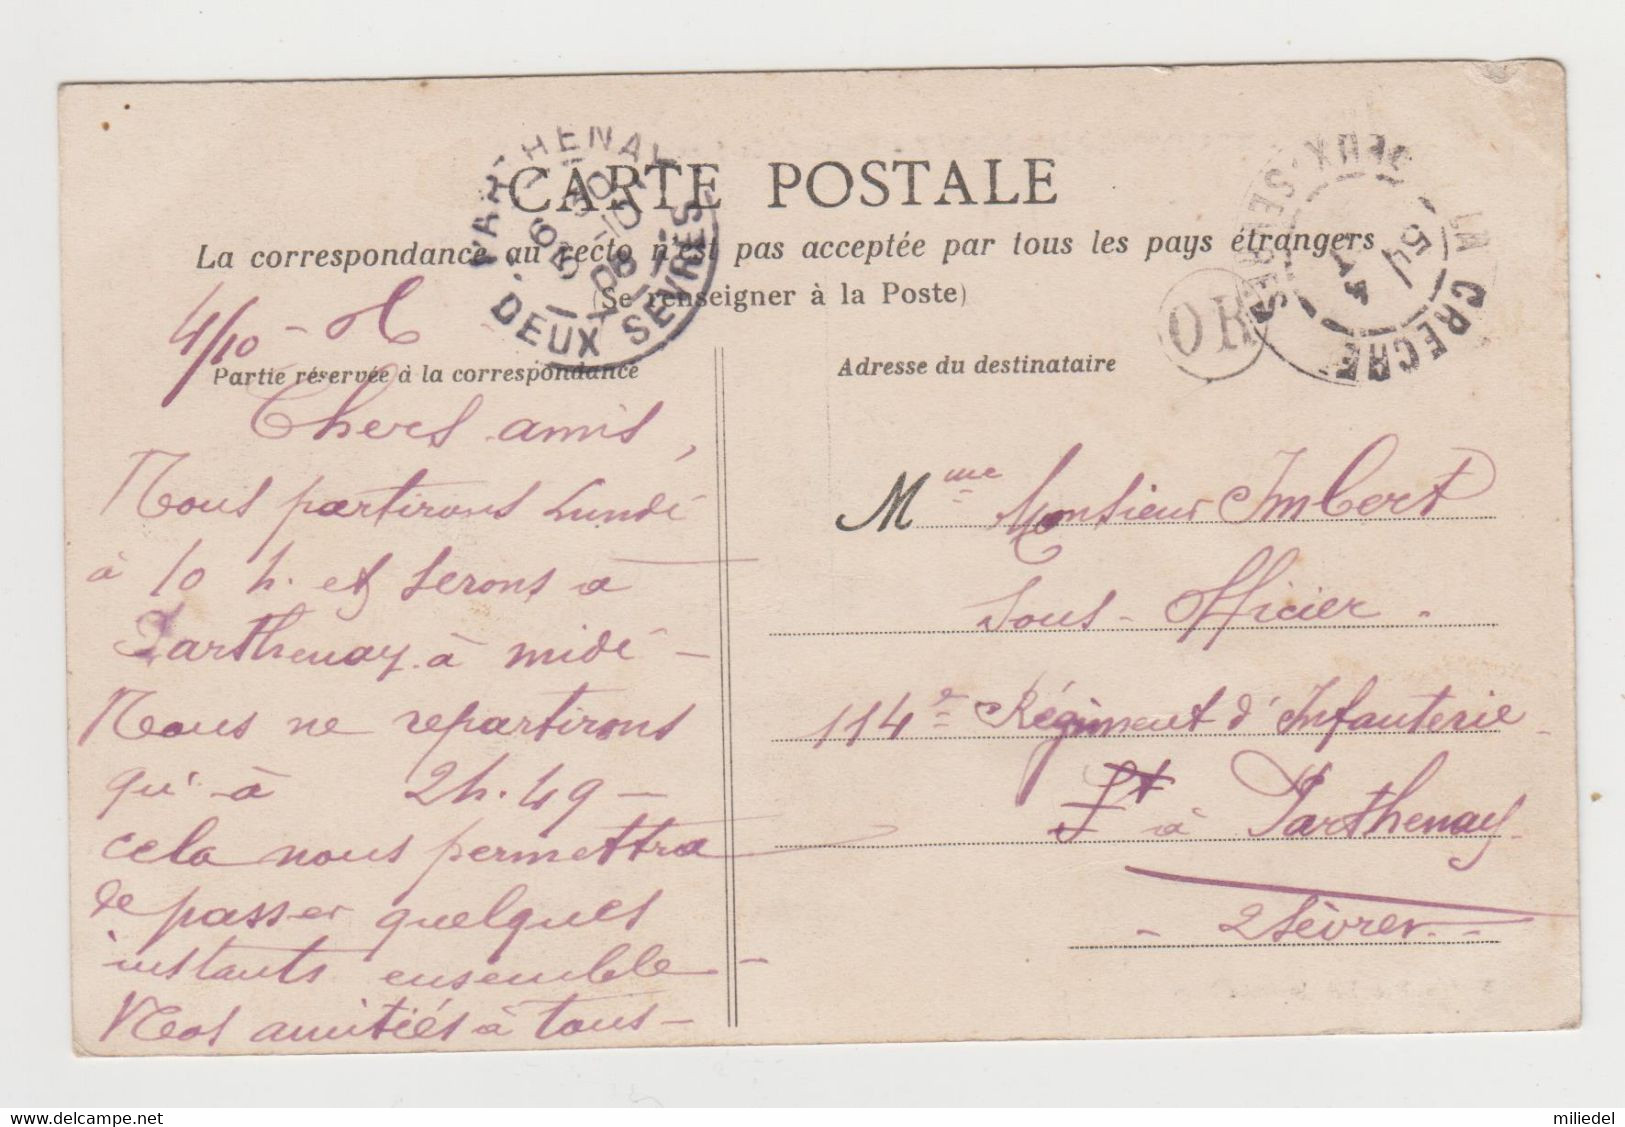 CARTE POSTALE
La correspondance au recto n'est pas acceptée par tous les pays étrangers
(Se renseigner à la Poste)
PARTHENAY
DEUX SEVRES
LA CRECHE
DEUX-SEVRES
OR
4/10 -
Partie réservée à la correspondance
Chers amis,
Nous partirons Lundi
à 10 h. et serons à
Parthenay à midi -
Nous ne repartirons
qu'à 2h.49 -
cela nous permettra
de passer quelques
instants ensemble -
Nos amitiés à tous -
Adresse du destinataire
Mme Monsieur Imbert
Sous-Officier.
114e Régiment d'Infanterie
à Parthenay
- 2 Sèvres -
miliedel © delcampe.net